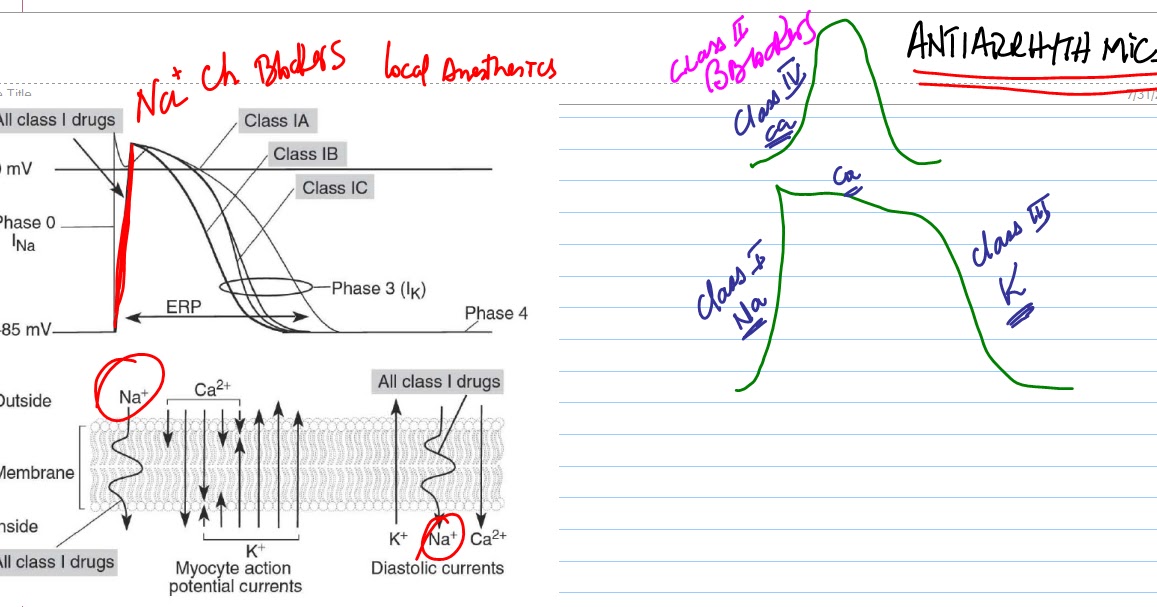 Na+ Ch Blockers local Anesthetics
Title
All class I drugs
Class IA
Class IB
Class IC
0 mV
Phase 0
INa
ERP
Phase 3 (IK)
Phase 4
-85 mV
Outside
Na+
Ca2+
All class I drugs
Membrane
Inside
K+
Na+
Ca2+
K+
All class I drugs
Myocyte action
potential currents
Diastolic currents
Class II
BBlockers
Class IV
Ca
ANTIARRHYTHMICS
7/31/2
Ca
Class I
Na
Class III
K